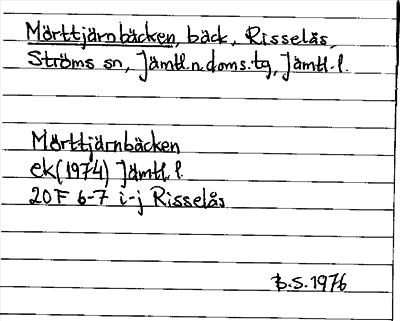 Mörttjärnbäcken, bäck, Risselås,
Ströms sn, Jämtl.n.doms.tg, Jämtl.l.
Mörttjärnbäcken
ek(1974) Jämtl l
20F 6-7 i-j Risselås
B.S.1976